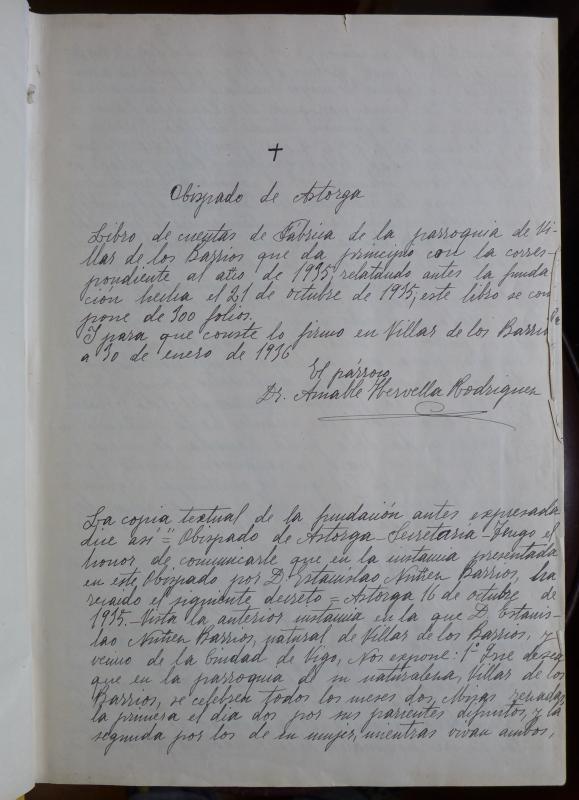 +
Obispado de Astorga
Libro de cuentas de Fabrica de la parroquia de Vi-
llar de los Barrios que da principio con la corres-
pondiente al año de 1935, relatando antes la funda-
ción hecha el 21 de octubre de 1935; este libro se com
pone de 300 folios.
Y para que conste lo firmo en Villar de los Barrios
a 30 de enero de 1936
El párroco,
Dr. Amable Hervella Rodriguez
La copia textual de la fundación antes expresada
dice asi "= Obispado de Astorga - Secretaria - Tengo el
honor de comunicarle que en la instancia presentada
en este Obispado por D. Estanislao Núñez Barrios, ha
recaido el siguiente decreto = Astorga 16 de octubre de
1935.- Vista la anterior instancia en la que D. Estanis-
lao Núñez Barrios, natural de Villar de los Barrios, y
vecino de la Ciudad de Vigo, Nos expone: 1º Que desea
que en la parroquia de su naturaleza, Villar de los
Barrios, se celebren todos los meses dos Misas rezadas,
la primera el dia dos por sus parientes difuntos, y la
segunda por los de su mujer, mientras vivan ambos,